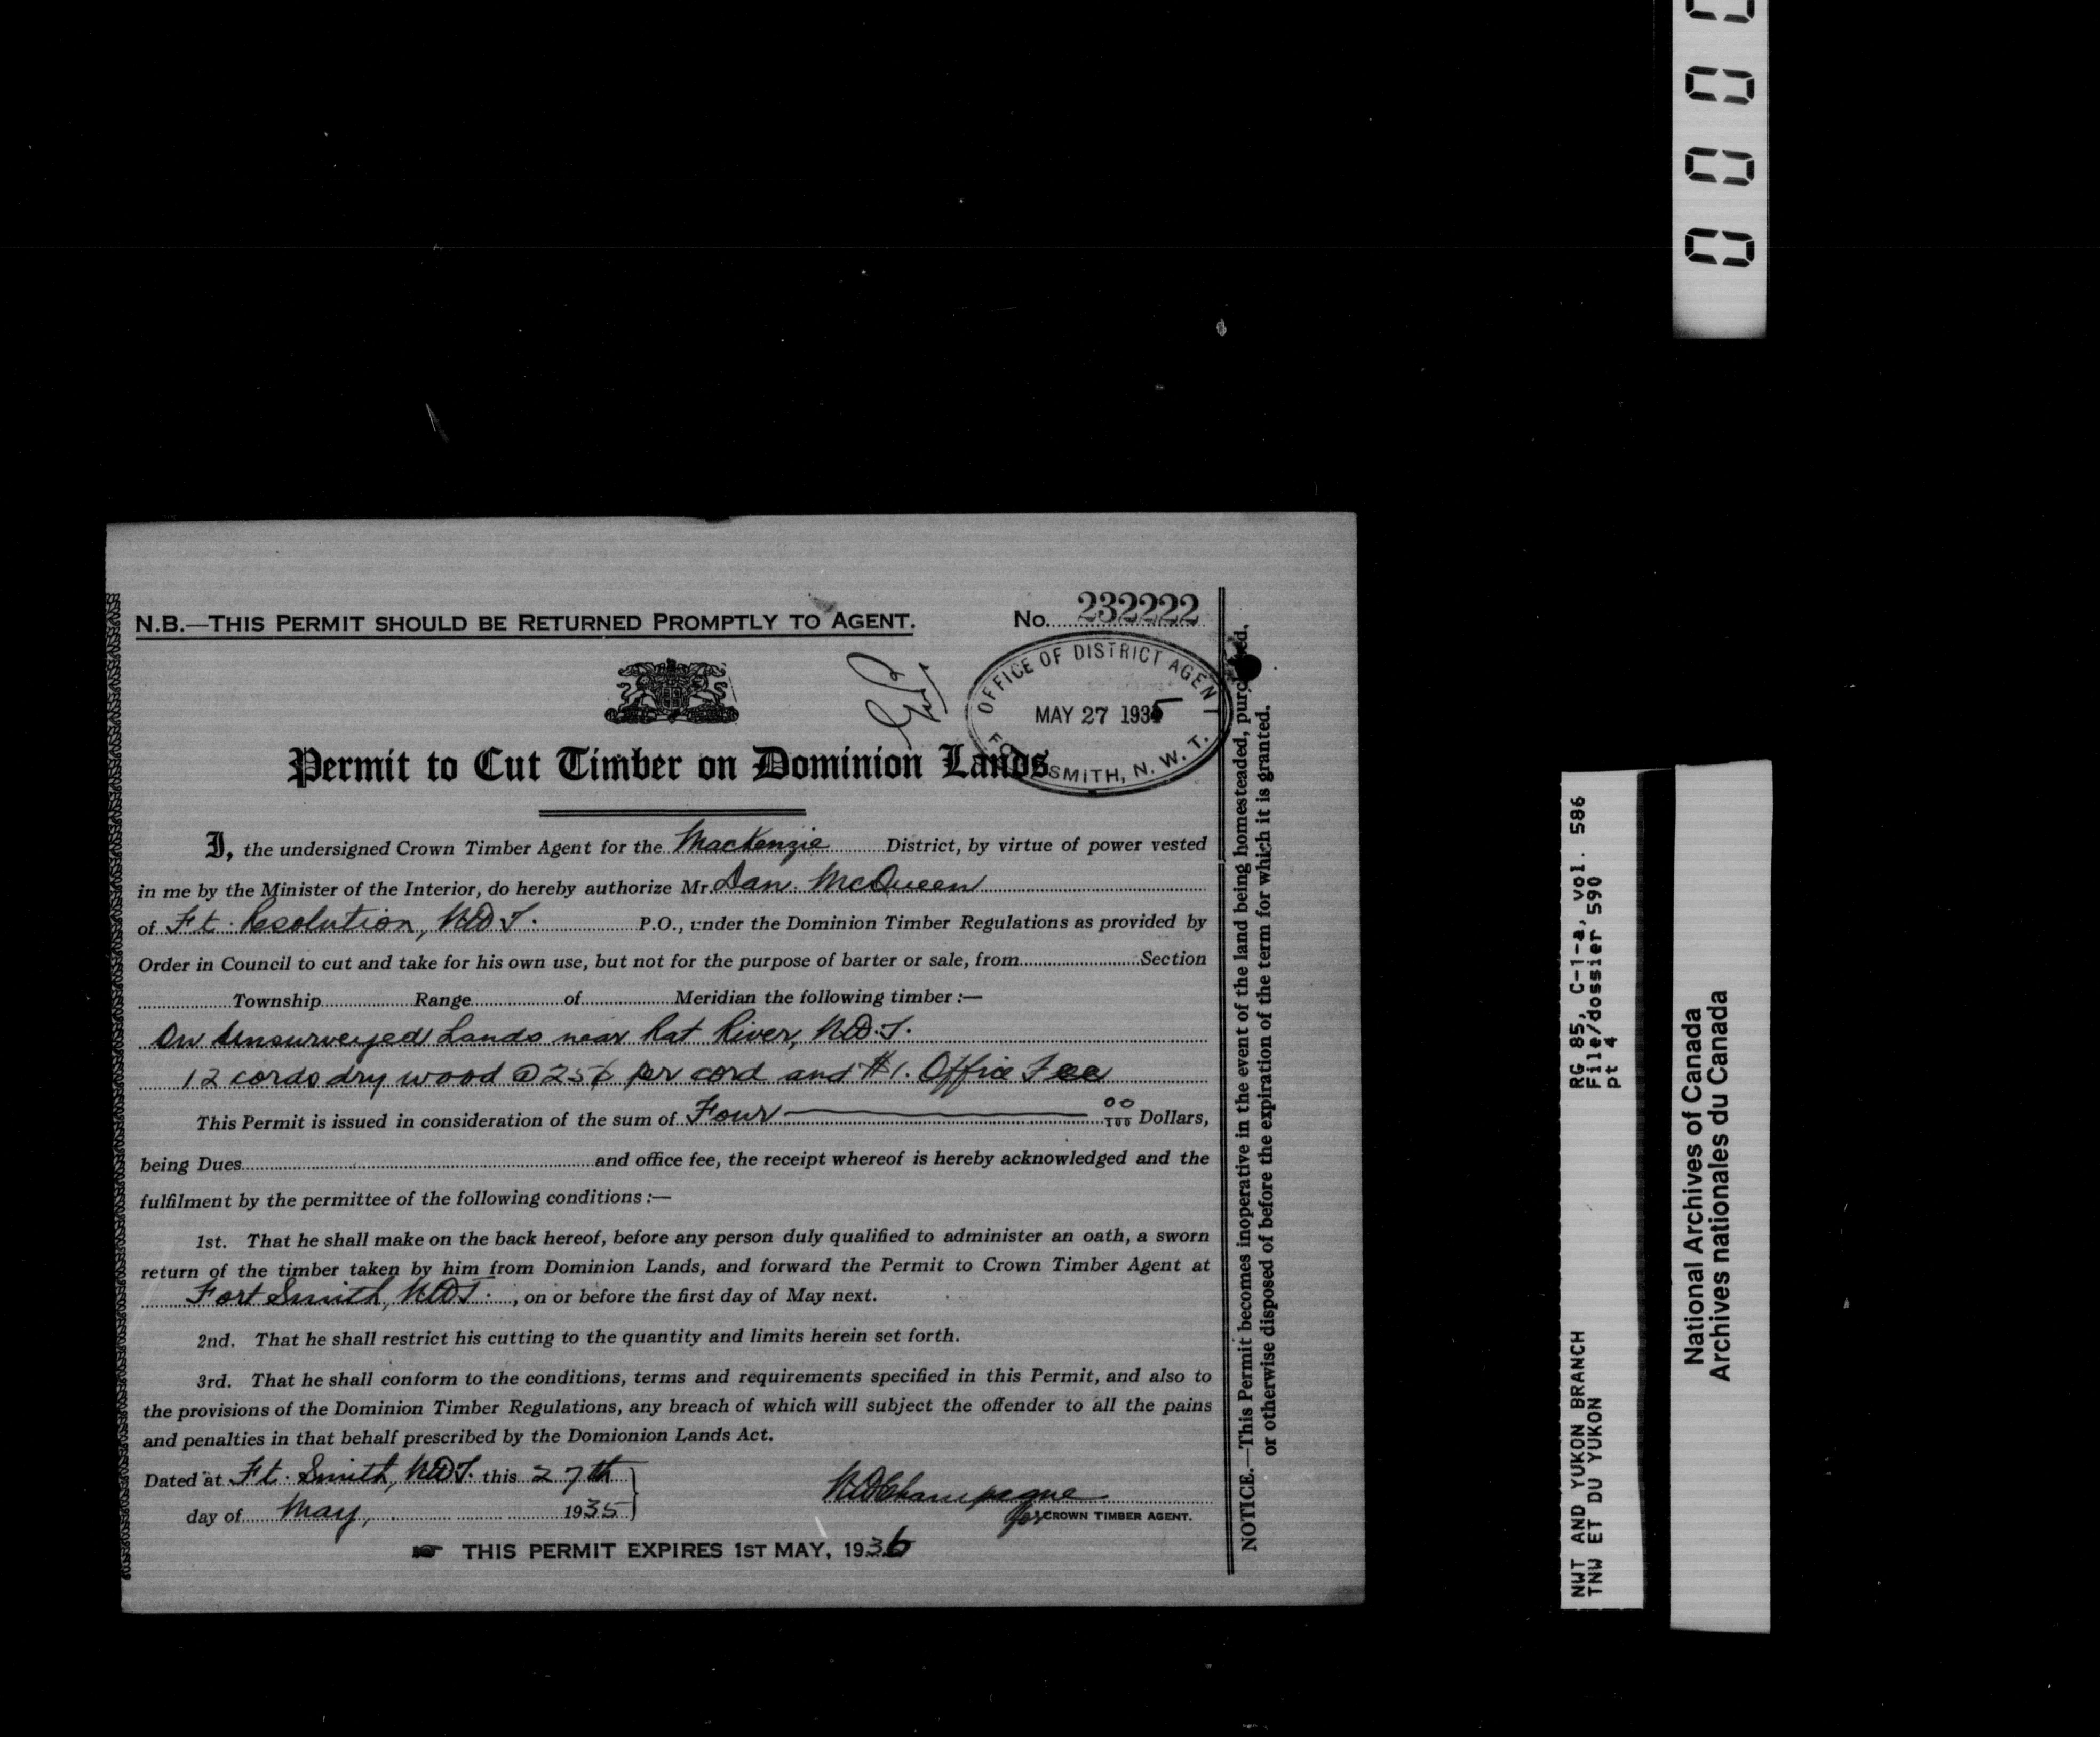 N.B.—THIS PERMIT SHOULD BE RETURNED PROMPTLY TO AGENT.
No. 232222
OFFICE OF DISTRICT AGENT
MAY 27 1935
SMITH, N. W. T.
Permit to Cut Timber on Dominion Lands
I, the undersigned Crown Timber Agent for the MacKenzie District, by virtue of power vested
in me by the Minister of the Interior, do hereby authorize Mr. Dan. McQueen
of Ft. Resolution, N.W.T. P.O., under the Dominion Timber Regulations as provided by
Order in Council to cut and take for his own use, but not for the purpose of barter or sale, from Section
Township Range of Meridian the following timber :—
On Unsurveyed Lands near Rat River, N.W.T.
12 cords dry wood @ 25¢ per cord and $1. Office Fee
This Permit is issued in consideration of the sum of Four 00/100 Dollars,
being Dues and office fee, the receipt whereof is hereby acknowledged and the
fulfilment by the permittee of the following conditions :—
1st. That he shall make on the back hereof, before any person duly qualified to administer an oath, a sworn
return of the timber taken by him from Dominion Lands, and forward the Permit to Crown Timber Agent at
Fort Smith, N.W.T. , on or before the first day of May next.
2nd. That he shall restrict his cutting to the quantity and limits herein set forth.
3rd. That he shall conform to the conditions, terms and requirements specified in this Permit, and also to
the provisions of the Dominion Timber Regulations, any breach of which will subject the offender to all the pains
and penalties in that behalf prescribed by the Domionion Lands Act.
Dated at Ft. Smith, N.W.T. this 27th
day of May, 1935
Champagne
for CROWN TIMBER AGENT.
THIS PERMIT EXPIRES 1ST MAY, 1936
NOTICE.—This Permit becomes inoperative in the event of the land being homesteaded,
or otherwise disposed of before the expiration of the term for which it is granted.
RG 85, C-1-a, vol. 586
File/dossier 590
pt 4
NWT AND YUKON BRANCH
TNW ET DU YUKON
National Archives of Canada
Archives nationales du Canada